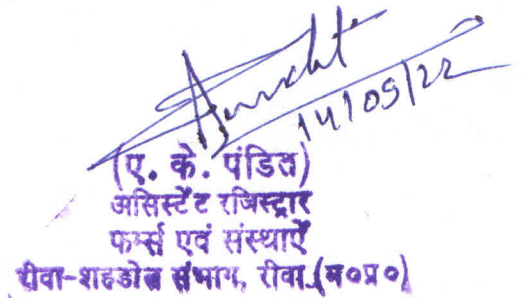 14/09/22
(ए. के. पंडित)
असिस्टेंट रजिस्ट्रार
फर्म्स एवं संस्थाएँ
रीवा-शहडोल संभाग, रीवा (म०प्र०)